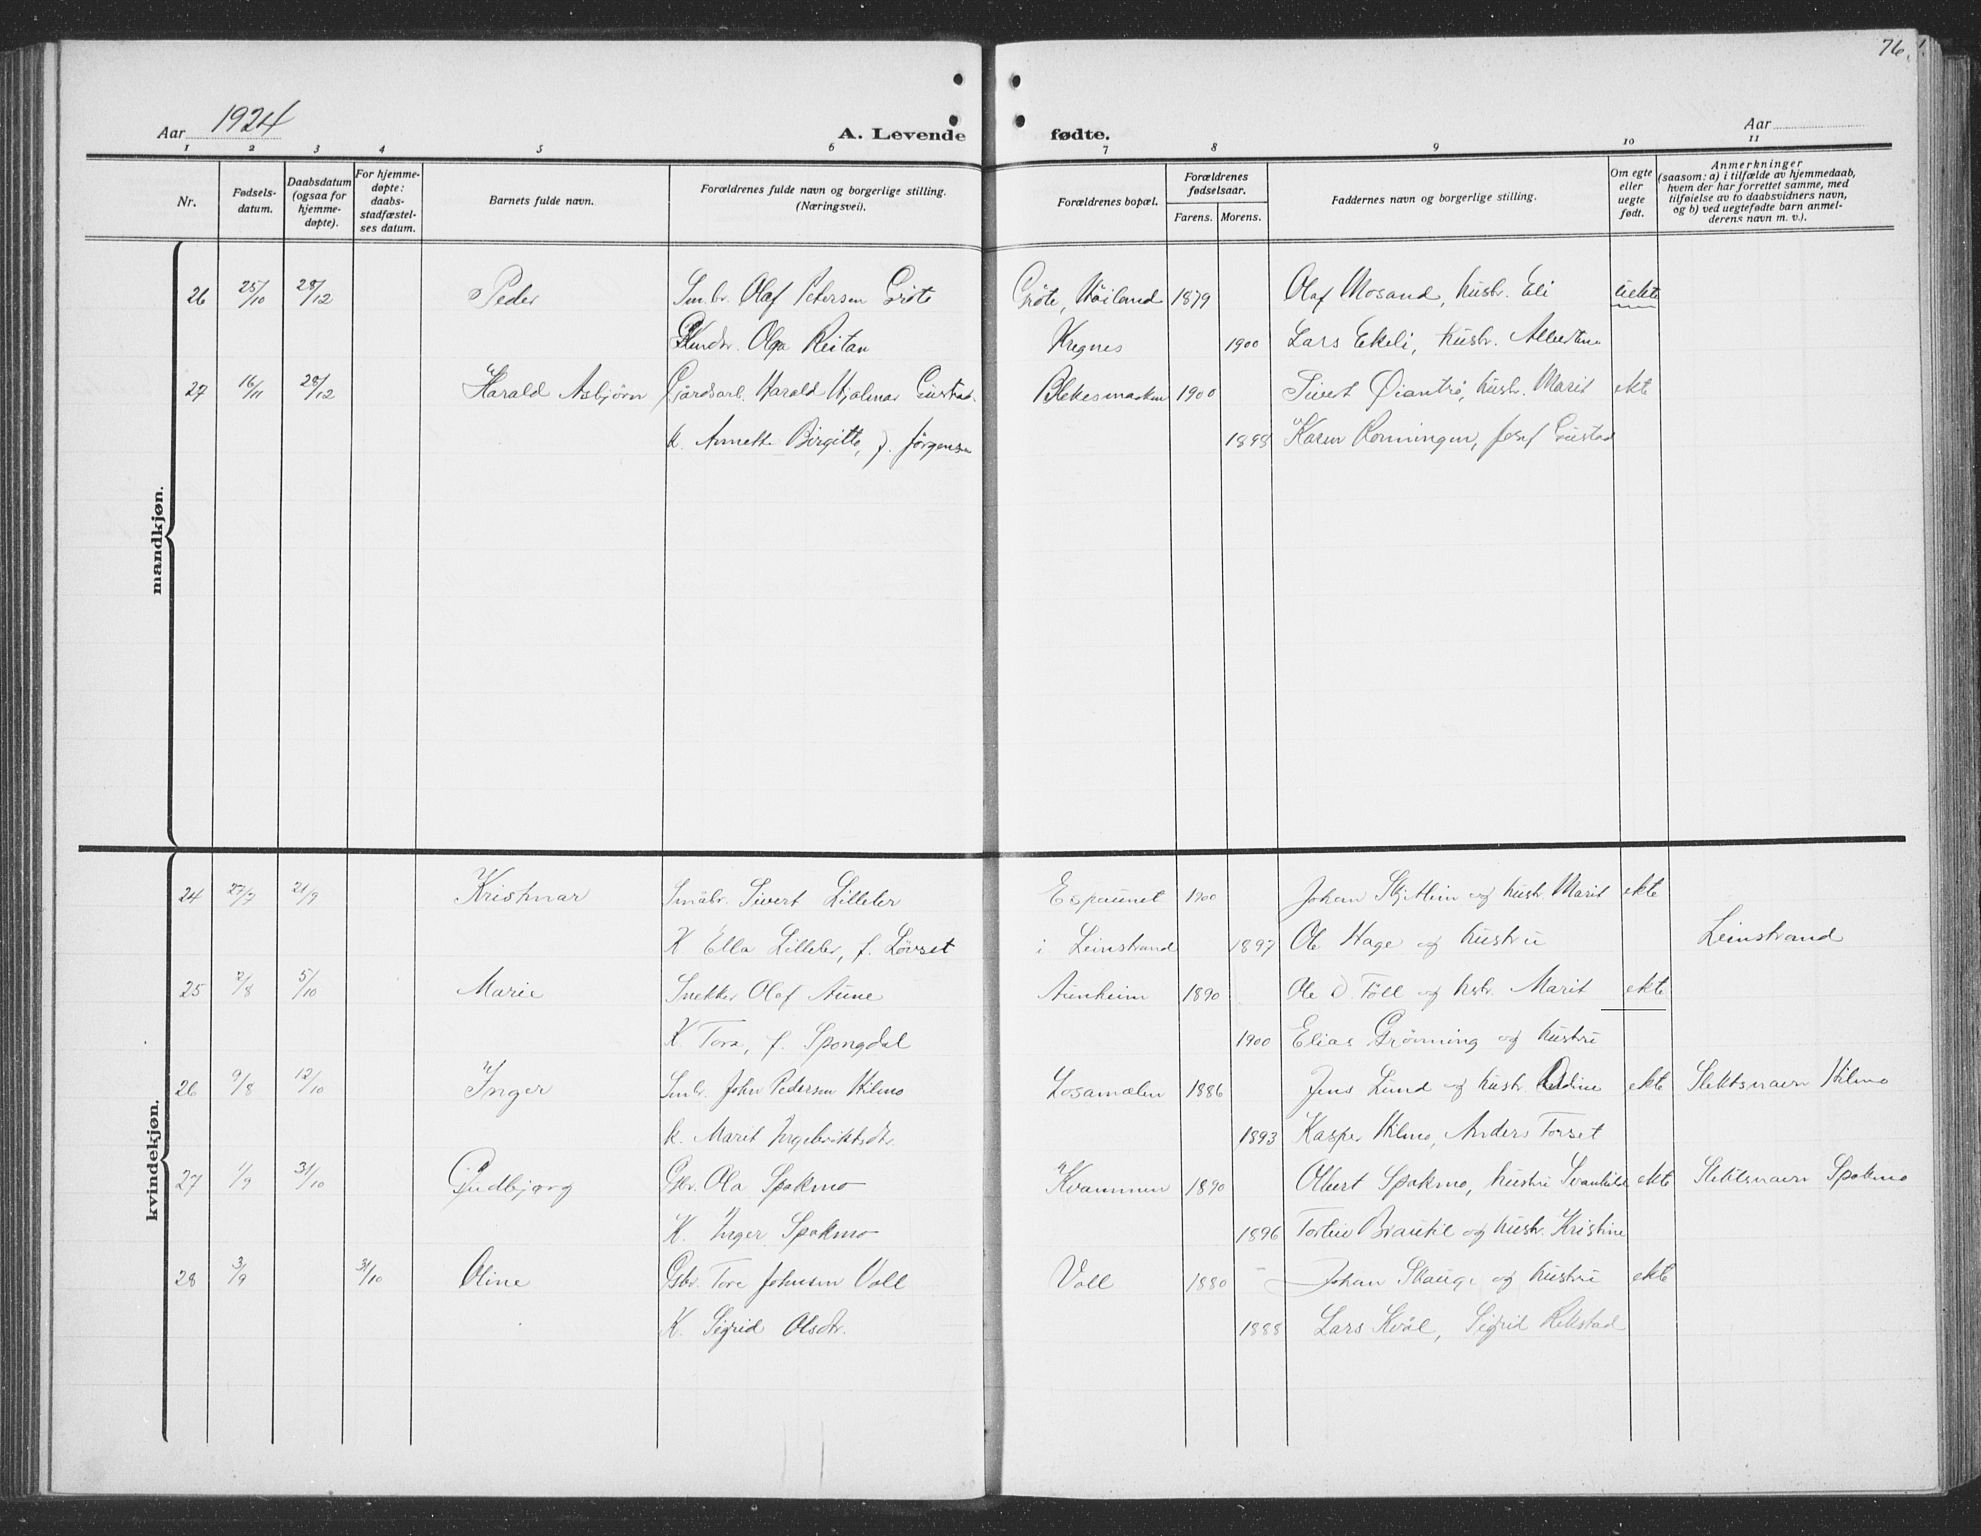 76.
Aar 1924
A. Levende fødte.
Aar
1 2 3 4 5 6 7 8 9 10 11
Nr.
Fødsels-
datum.
Daabsdatum
(ogsaa for
hjemme-
døpte).
For hjemme-
døpte:
daabs-
stadfæstel-
ses datum.
Barnets fulde navn.
Forældrenes fulde navn og borgerlige stilling.
(Næringsvei).
Forældrenes bopæl.
Forældrenes
fødselsaar.
Farens. Morens.
Faddernes navn og borgerlige stilling.
Om egte
eller
uegte
født.
Anmerkninger
(saasom: a) i tilfælde av hjemmedaab,
hvem der har forrettet samme, med
tilføielse av to daabsvidners navn,
og b) ved uegtefødte barn anmel-
derens navn m. v.).
mandkjøn.
26 25/10 28/12 Peder Smbr. Olaf Petersen Grøte Grøte, Høiland 1879 Olaf Mosand, hustr. Eli uekte
Olga Reitan Kregnes 1900 Lars Ekeli, hustr. Albertine
27 16/11 28/12 Harald Asbjørn Gårdsarb. Harald Hjalmar Gustad Blekesmarken 1900 Sivert Øiantrø, hustr. Marit ekte
k. Annette Birgitte, f. Jørgensen 1898 Karen Rønningen, Josef Gustad
kvindekjøn.
24 27/7 21/9 Kristmar Småbr. Sivert Lilleler Espaunet 1900 Johan og hustr. Marit ekte
K Ella Lilleler, f. Løvset i Leinstrand 1897 Ole Hage og hustru Leinstrand
25 2/8 5/10 Marie Snekker Olaf Aune Aunheim 1890 Ole D. Föll og hstr. Marit ekte
K Tora, f. Spongdal 1900 Elias Grønning og hustru
26 9/8 12/10 Inger Smbr. John Pedersen Hilmo Losamælen 1886 Jens Lund og hustr. ekte Slektsnavn Hilmo
k. Marit Ingebriktsdtr. 1893 Kasper Hilmo, Anders Torset
27 1/9 31/10 Gudbjørg Gbr. Ola Spokmo Kvammen 1890 Olbert Spokmo, hustru Svanhild ekte Slektsnavn Spokmo
K. Inger Spokmo 1896 Brautil og hustr. Kristine
28 3/9 31/10 Oline Gbr. Tore Johnsen Voll Voll 1880 Johan Skauge og hustru ekte
K. Sigrid Olsdtr. 1888 Lars Kvål, Sigrid Rekstad